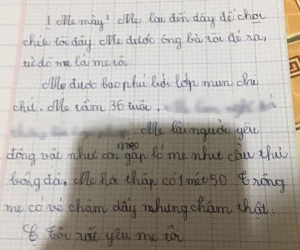 ! Mẹ mày! Mẹ lao đến đây để chơi
chúc tôi đây. Mẹ được ông bà tôi đẻ ra,
từ đó mẹ là mẹ tôi.
Mẹ được bao phủ bởi lớp mụn chi
chít. Mẹ tầm 36 tuổi.
Mẹ là người yêu
động vật như con mèo gặp
mẹ như cầu thủ
bóng đá, Mẹ hơi thấp có 1 mét 50. Trông
mẹ có vẻ chăm đấy nhưng chăm thật.
Tôi rất yêu mẹ tôi